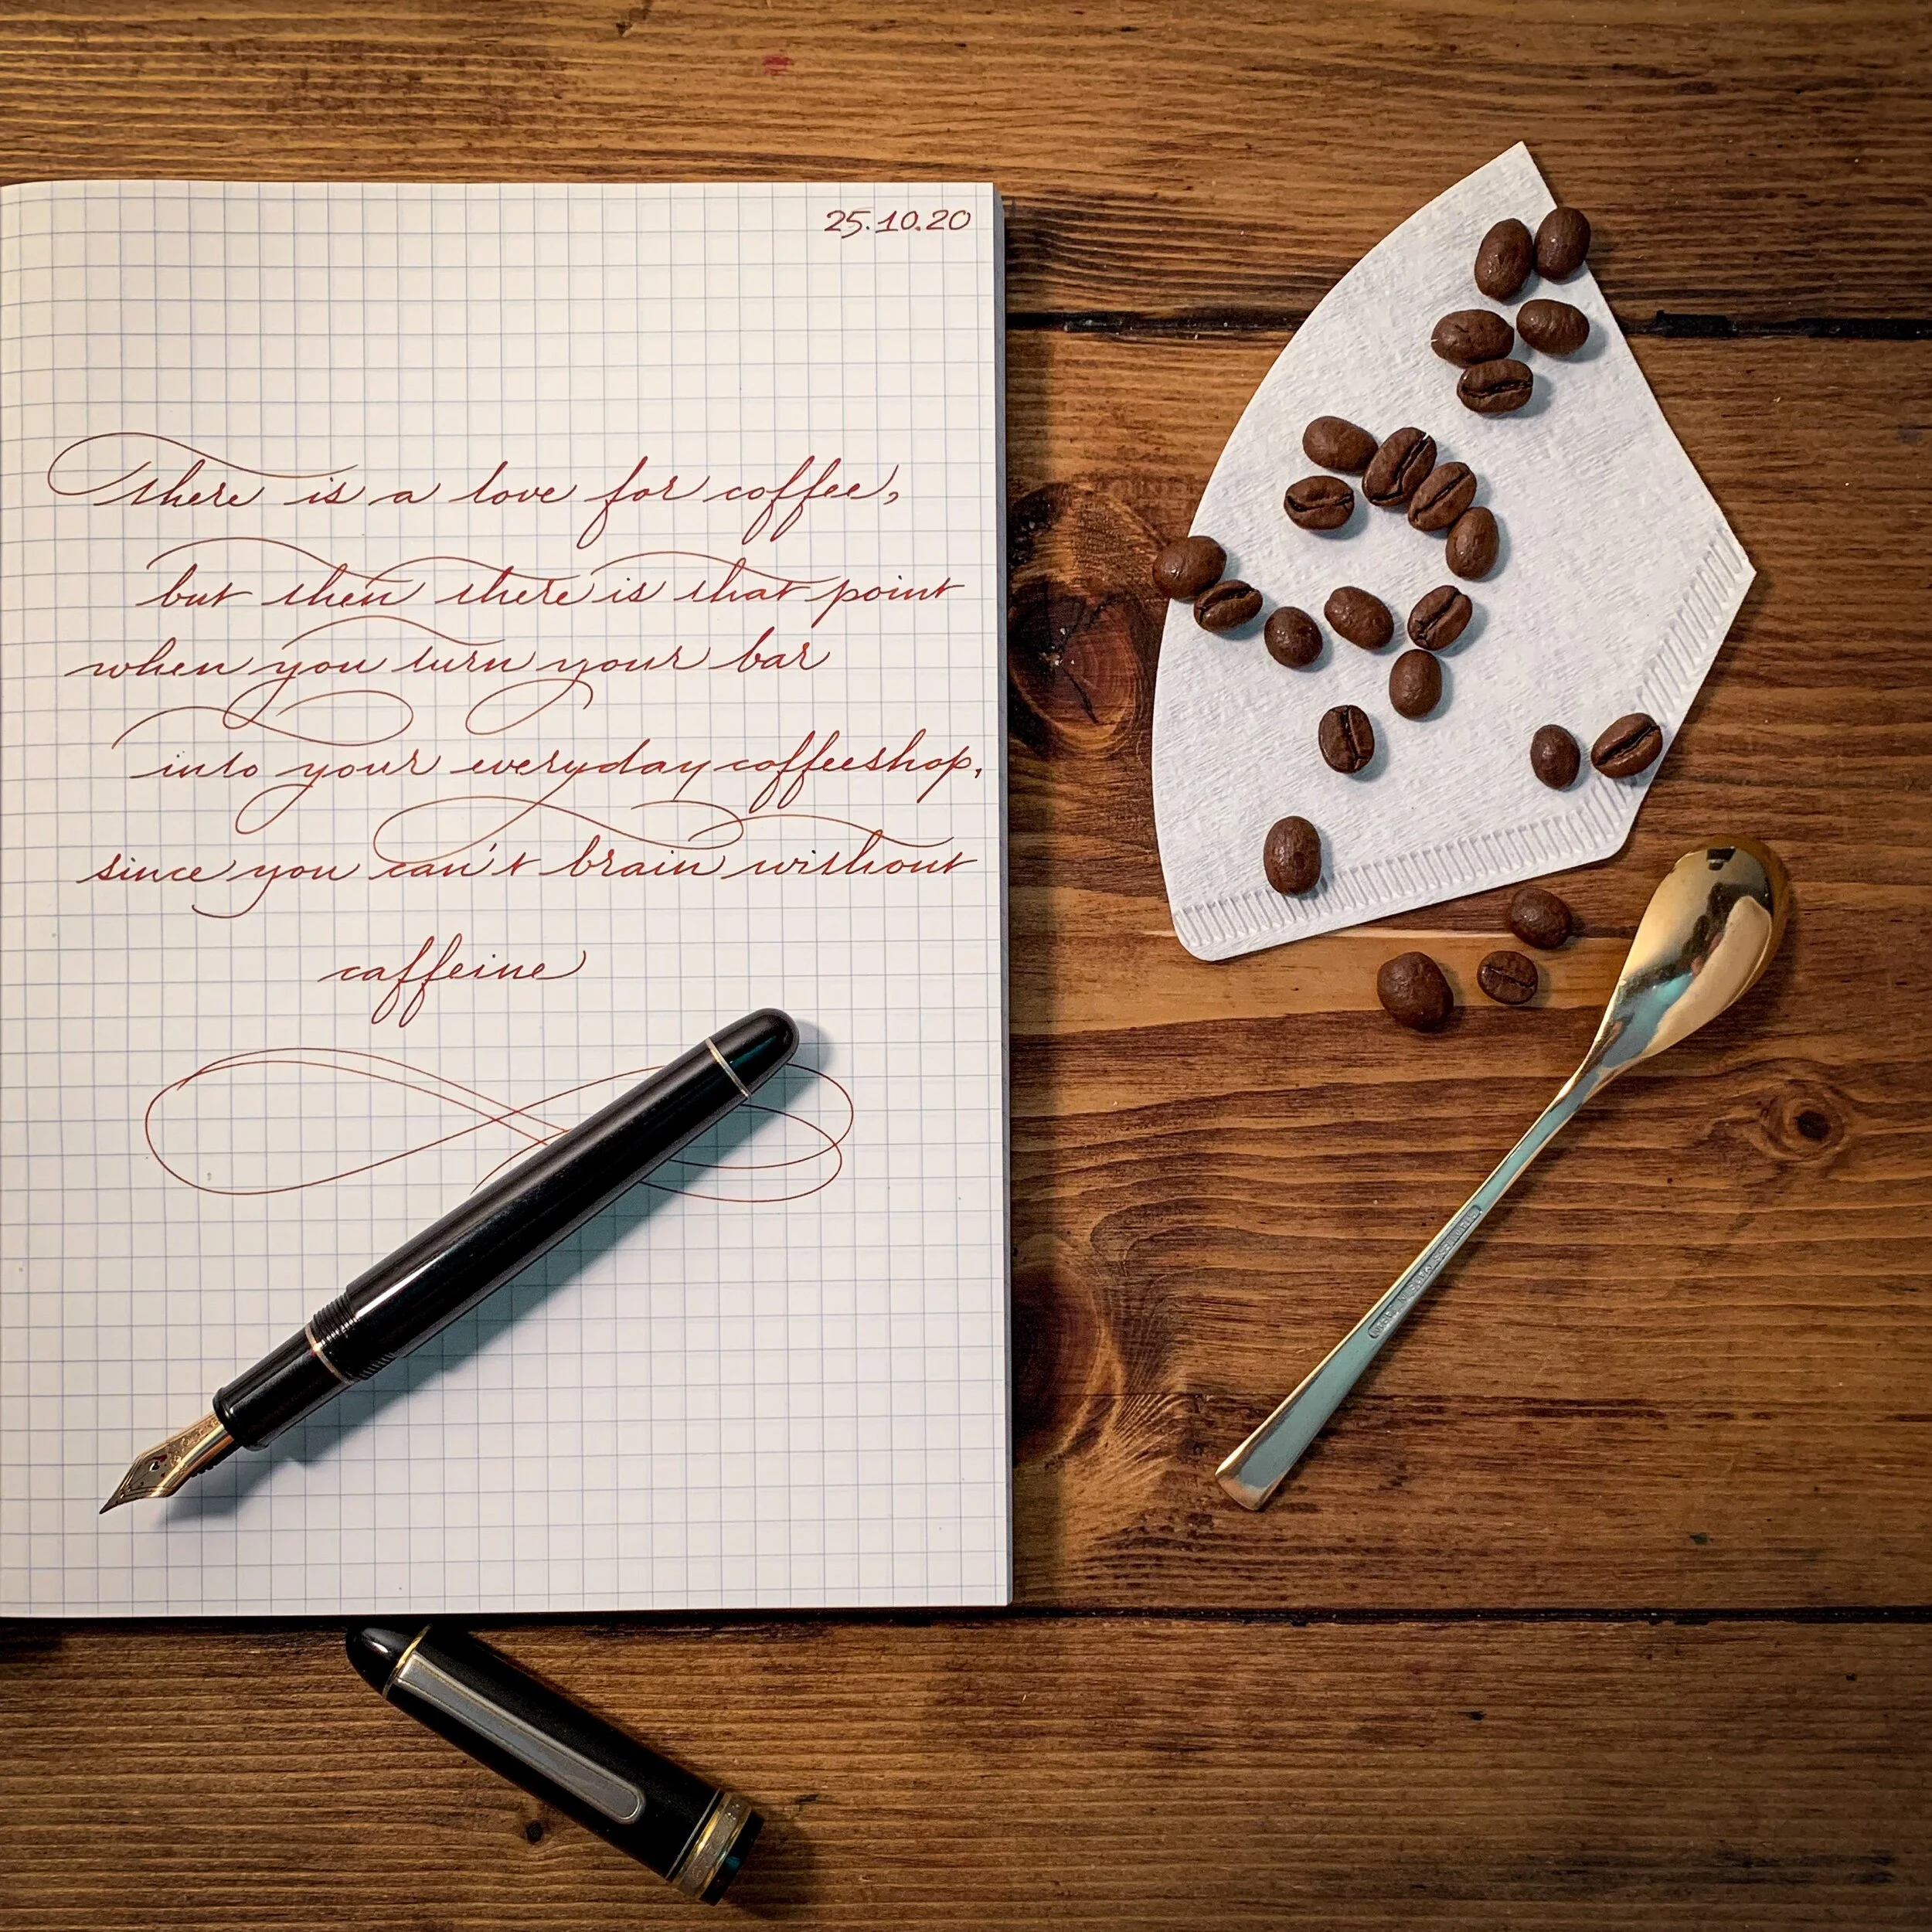 25.10.20
There is a love for coffee,
but then there is that point
when you turn your bar
into your everyday coffeeshop,
since you can't brain without
caffeine